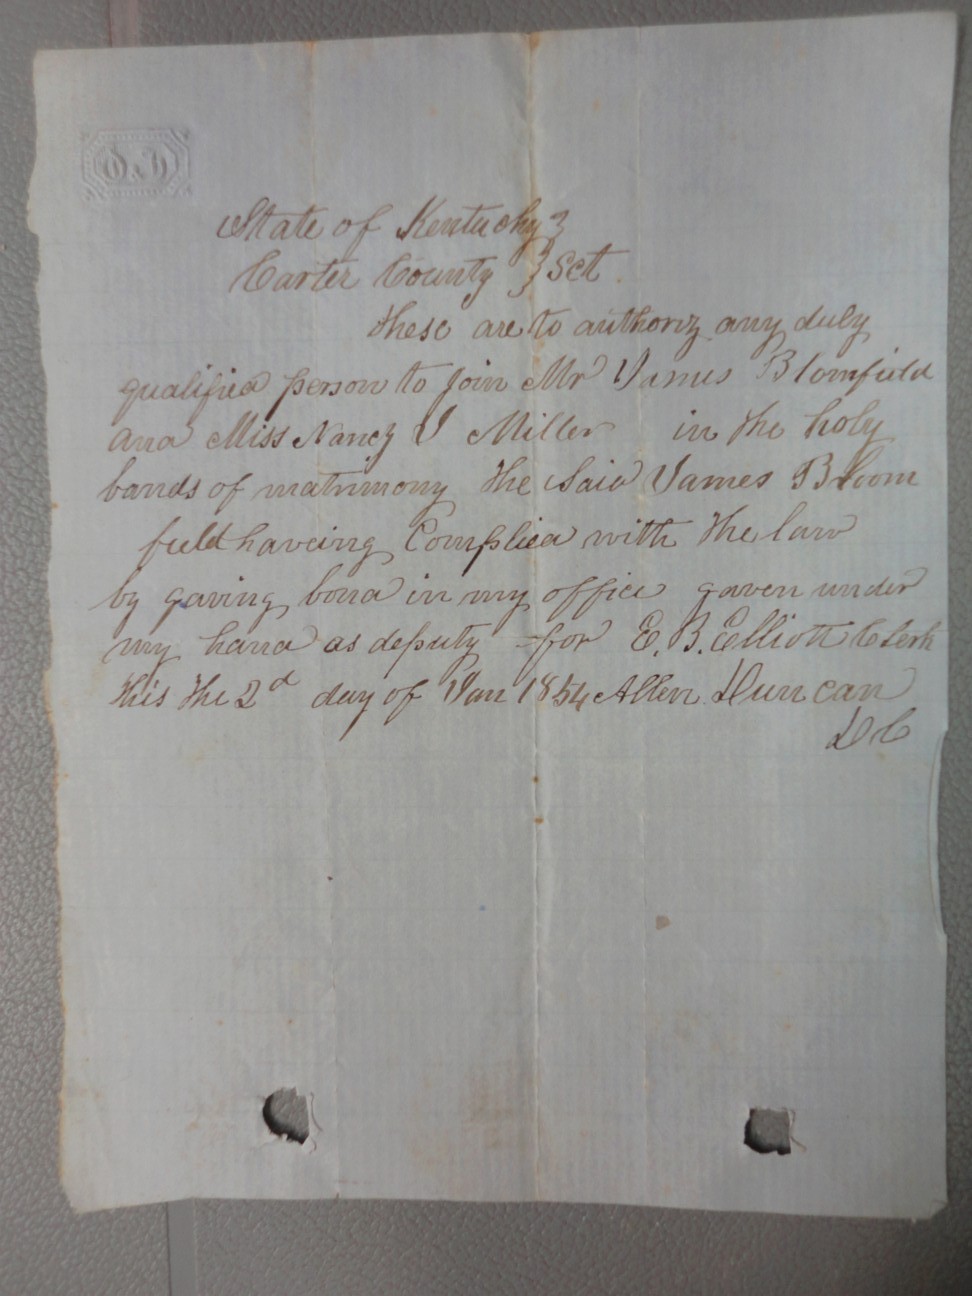 State of Kentucky }
Carter County } Sct
These are to authoriz any duly
qualified person to join Mr James Blomfield
and Miss Nancy J Miller in the holy
bands of matrimony the said James Bloom
field haveing Complied with the law
by gaving bond in my office gaven under
my hand as deputy for E. B. Elliott Clerk
this the 2d day of Jan 1854 Allen Duncan
D C